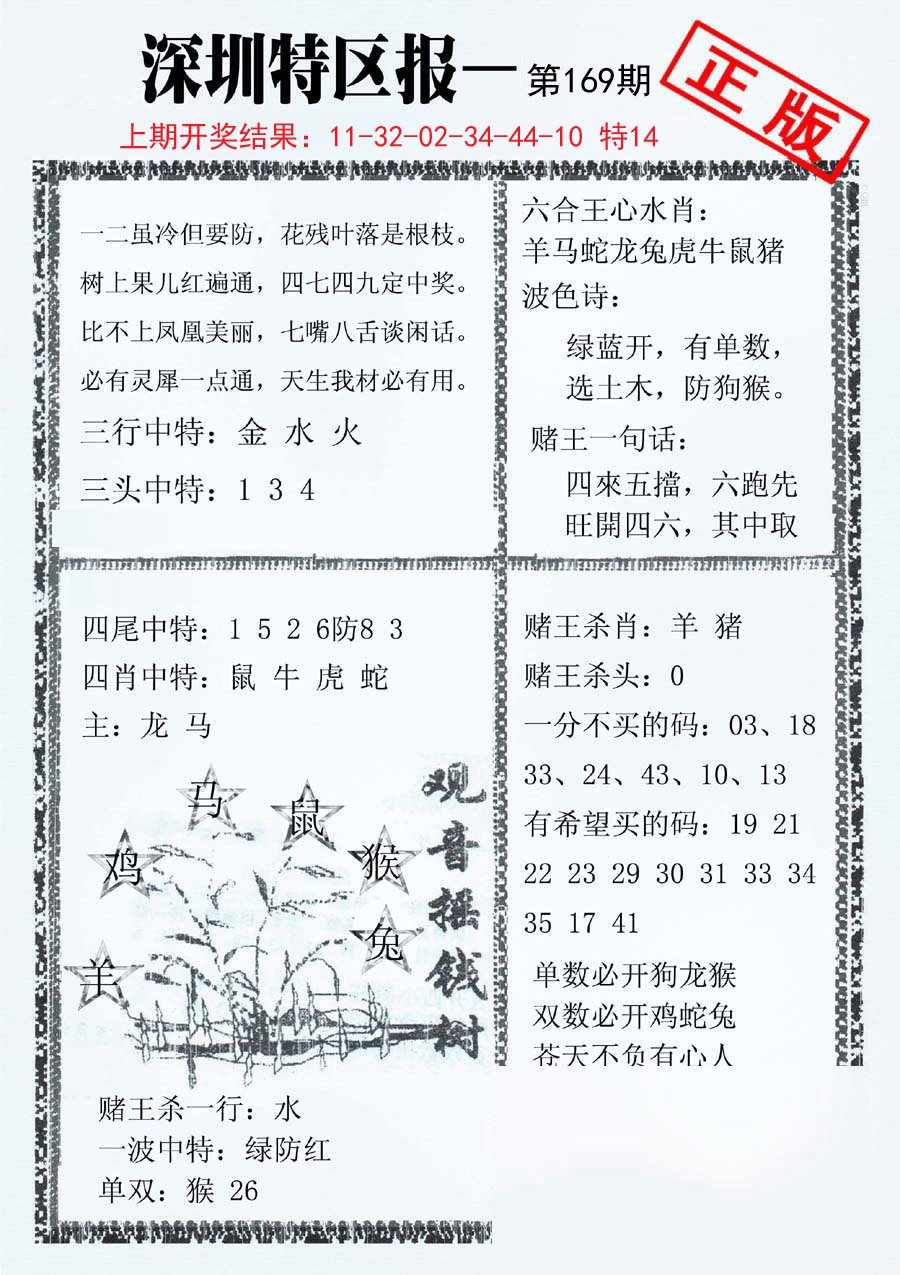 深圳特区报一 第169期
正版
上期开奖结果：11-32-02-34-44-10 特14
一二虽冷但要防，花残叶落是根枝。
树上果儿红遍通，四七四九定中奖。
比不上凤凰美丽，七嘴八舌谈闲话。
必有灵犀一点通，天生我材必有用。
三行中特：金 水 火
三头中特：1 3 4
六合王心水肖：
羊马蛇龙兔虎牛鼠猪
波色诗：
绿蓝开，有单数，
选土木，防狗猴。
赌王一句话：
四來五擋，六跑先
旺開四六，其中取
四尾中特：1 5 2 6防8 3
四肖中特：鼠 牛 虎 蛇
主：龙 马
马
鼠
鸡
猴
兔
羊
观音摇钱树
赌王杀一行：水
一波中特：绿防红
单双：猴 26
赌王杀肖：羊 猪
赌王杀头：0
一分不买的码：03、18
33、24、43、10、13
有希望买的码：19 21
22 23 29 30 31 33 34
35 17 41
单数必开狗龙猴
双数必开鸡蛇兔
苍天不负有心人